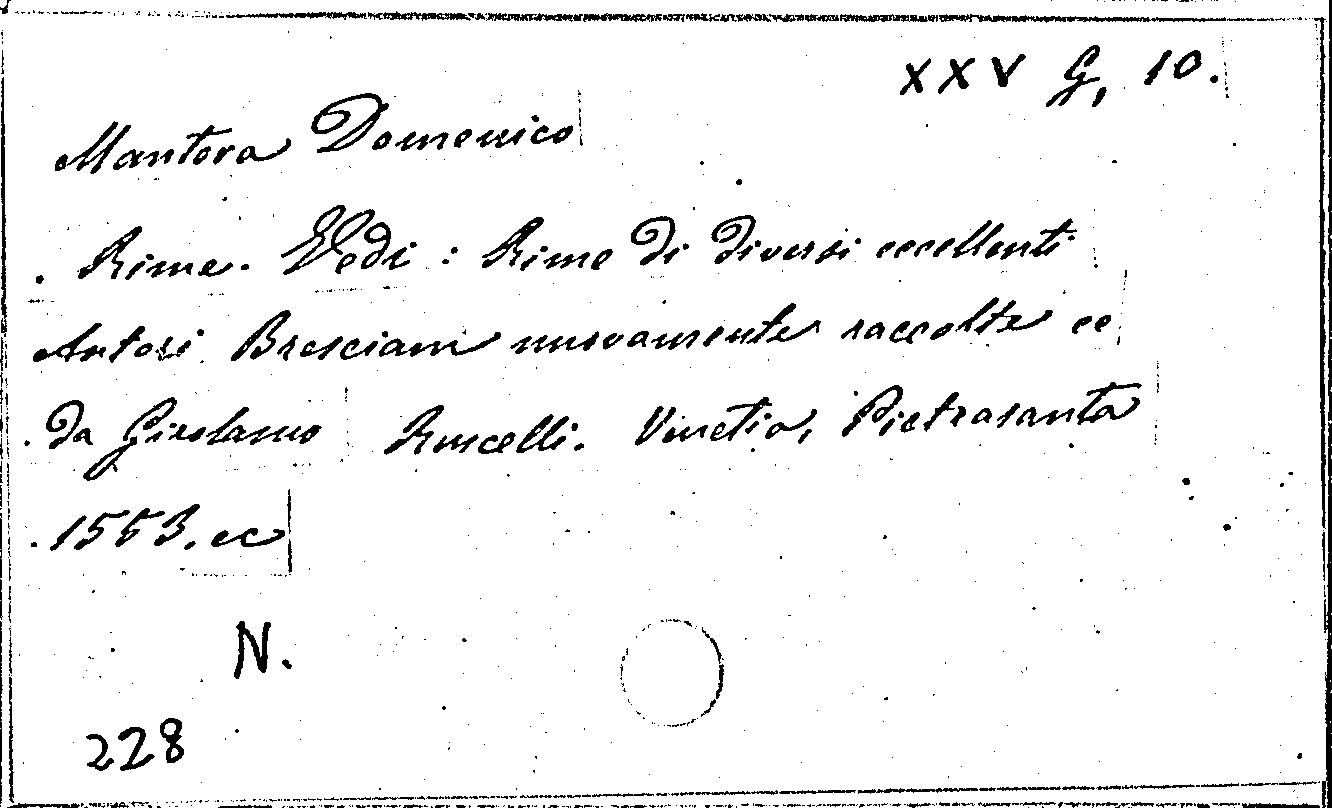 XXV G, 10.
Mantova Domenico
Rime. Vedi : Rime di diversi eccellenti
Autori Bresciani nuovamente raccolte ec
da Girolamo Ruscelli. Venetia, Pietrasanta
1553. ec
N.
228